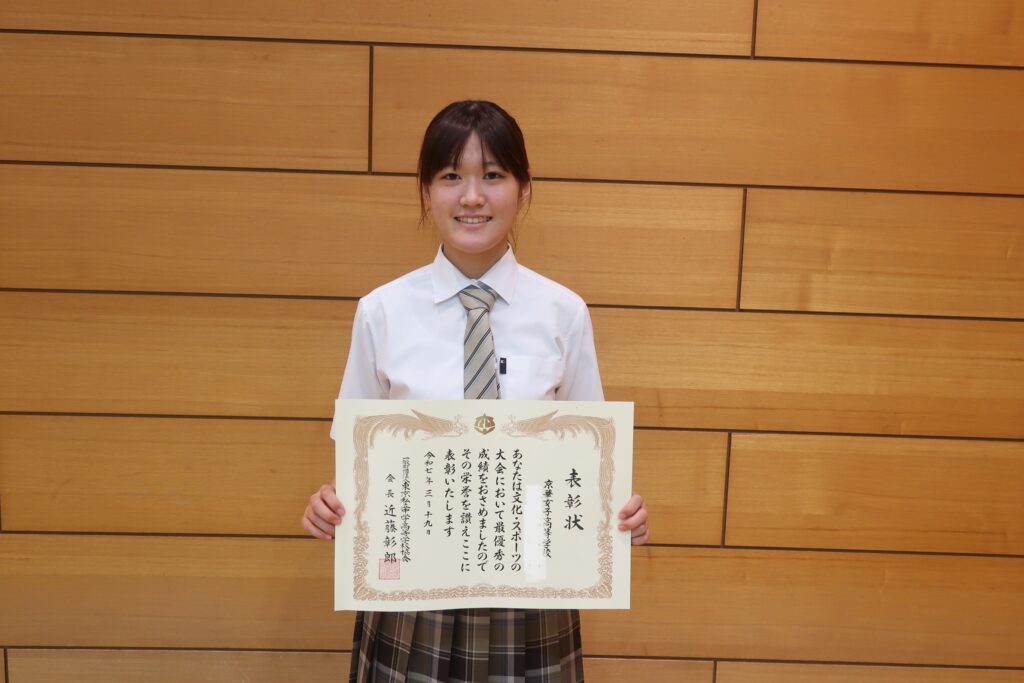 表彰状
京華女子高等学校
あなたは文化・スポーツの
大会において最優秀の
成績をおさめましたので
その栄誉を讃えここに
表彰いたします
令和七年三月十九日
一般財団法人東京私立中学高等学校協会
会長 近藤彰郎